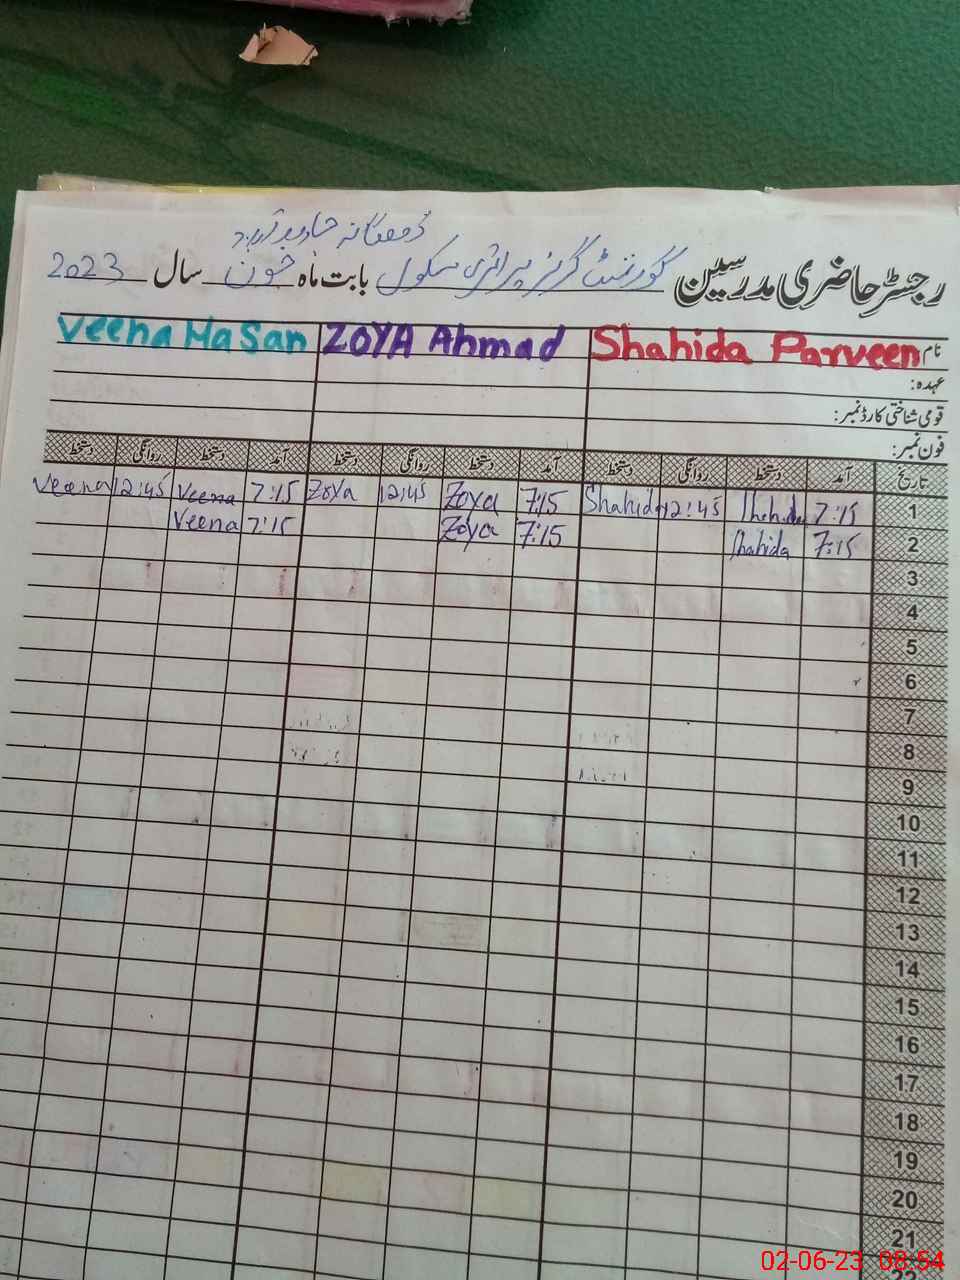 رجسٹر حاضری مدرسین گورنمنٹ گرلز پرائمری سکول بابت ماہ جون سال 2023
نام Shahida Parveen ZOYA Ahmad Veena HaSan
عہدہ:
قومی شناختی کارڈ نمبر:
فون نمبر:
تاریخ آمد دستخط روانگی دستخط آمد دستخط روانگی دستخط آمد دستخط روانگی دستخط
1 7:15 Shahida 12:45 Shahida 7:15 Zoya 12:45 Zoya 7:15 Veena 12:45 Veena
2 7:15 Shahida 7:15 Zoya 7:15 Veena
3
4
5
6
7
8
9
10
11
12
13
14
15
16
17
18
19
20
21
22
02-06-23 08:54